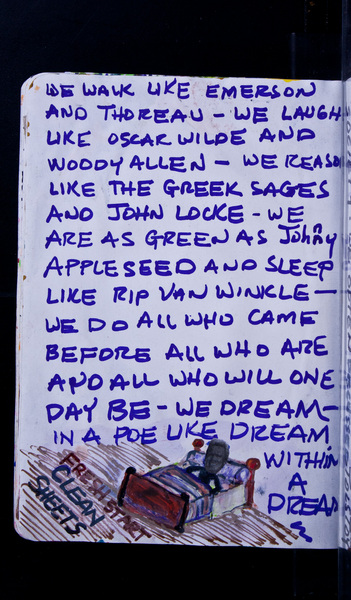 WE WALK LIKE EMERSON
AND THOREAU - WE LAUGH
LIKE OSCAR WILDE AND
WOODY ALLEN - WE REASON
LIKE THE GREEK SAGES
AND JOHN LOCKE - WE
ARE AS GREEN AS Johnny
APPLESEED AND SLEEP
LIKE RIP VAN WINKLE —
WE DO ALL WHO CAME
BEFORE ALL WHO ARE
AND ALL WHO WILL ONE
DAY BE - WE DREAM -
IN A POE LIKE DREAM
WITHIN
A
DREAM
FRESH START
CLEAN
SHEETS